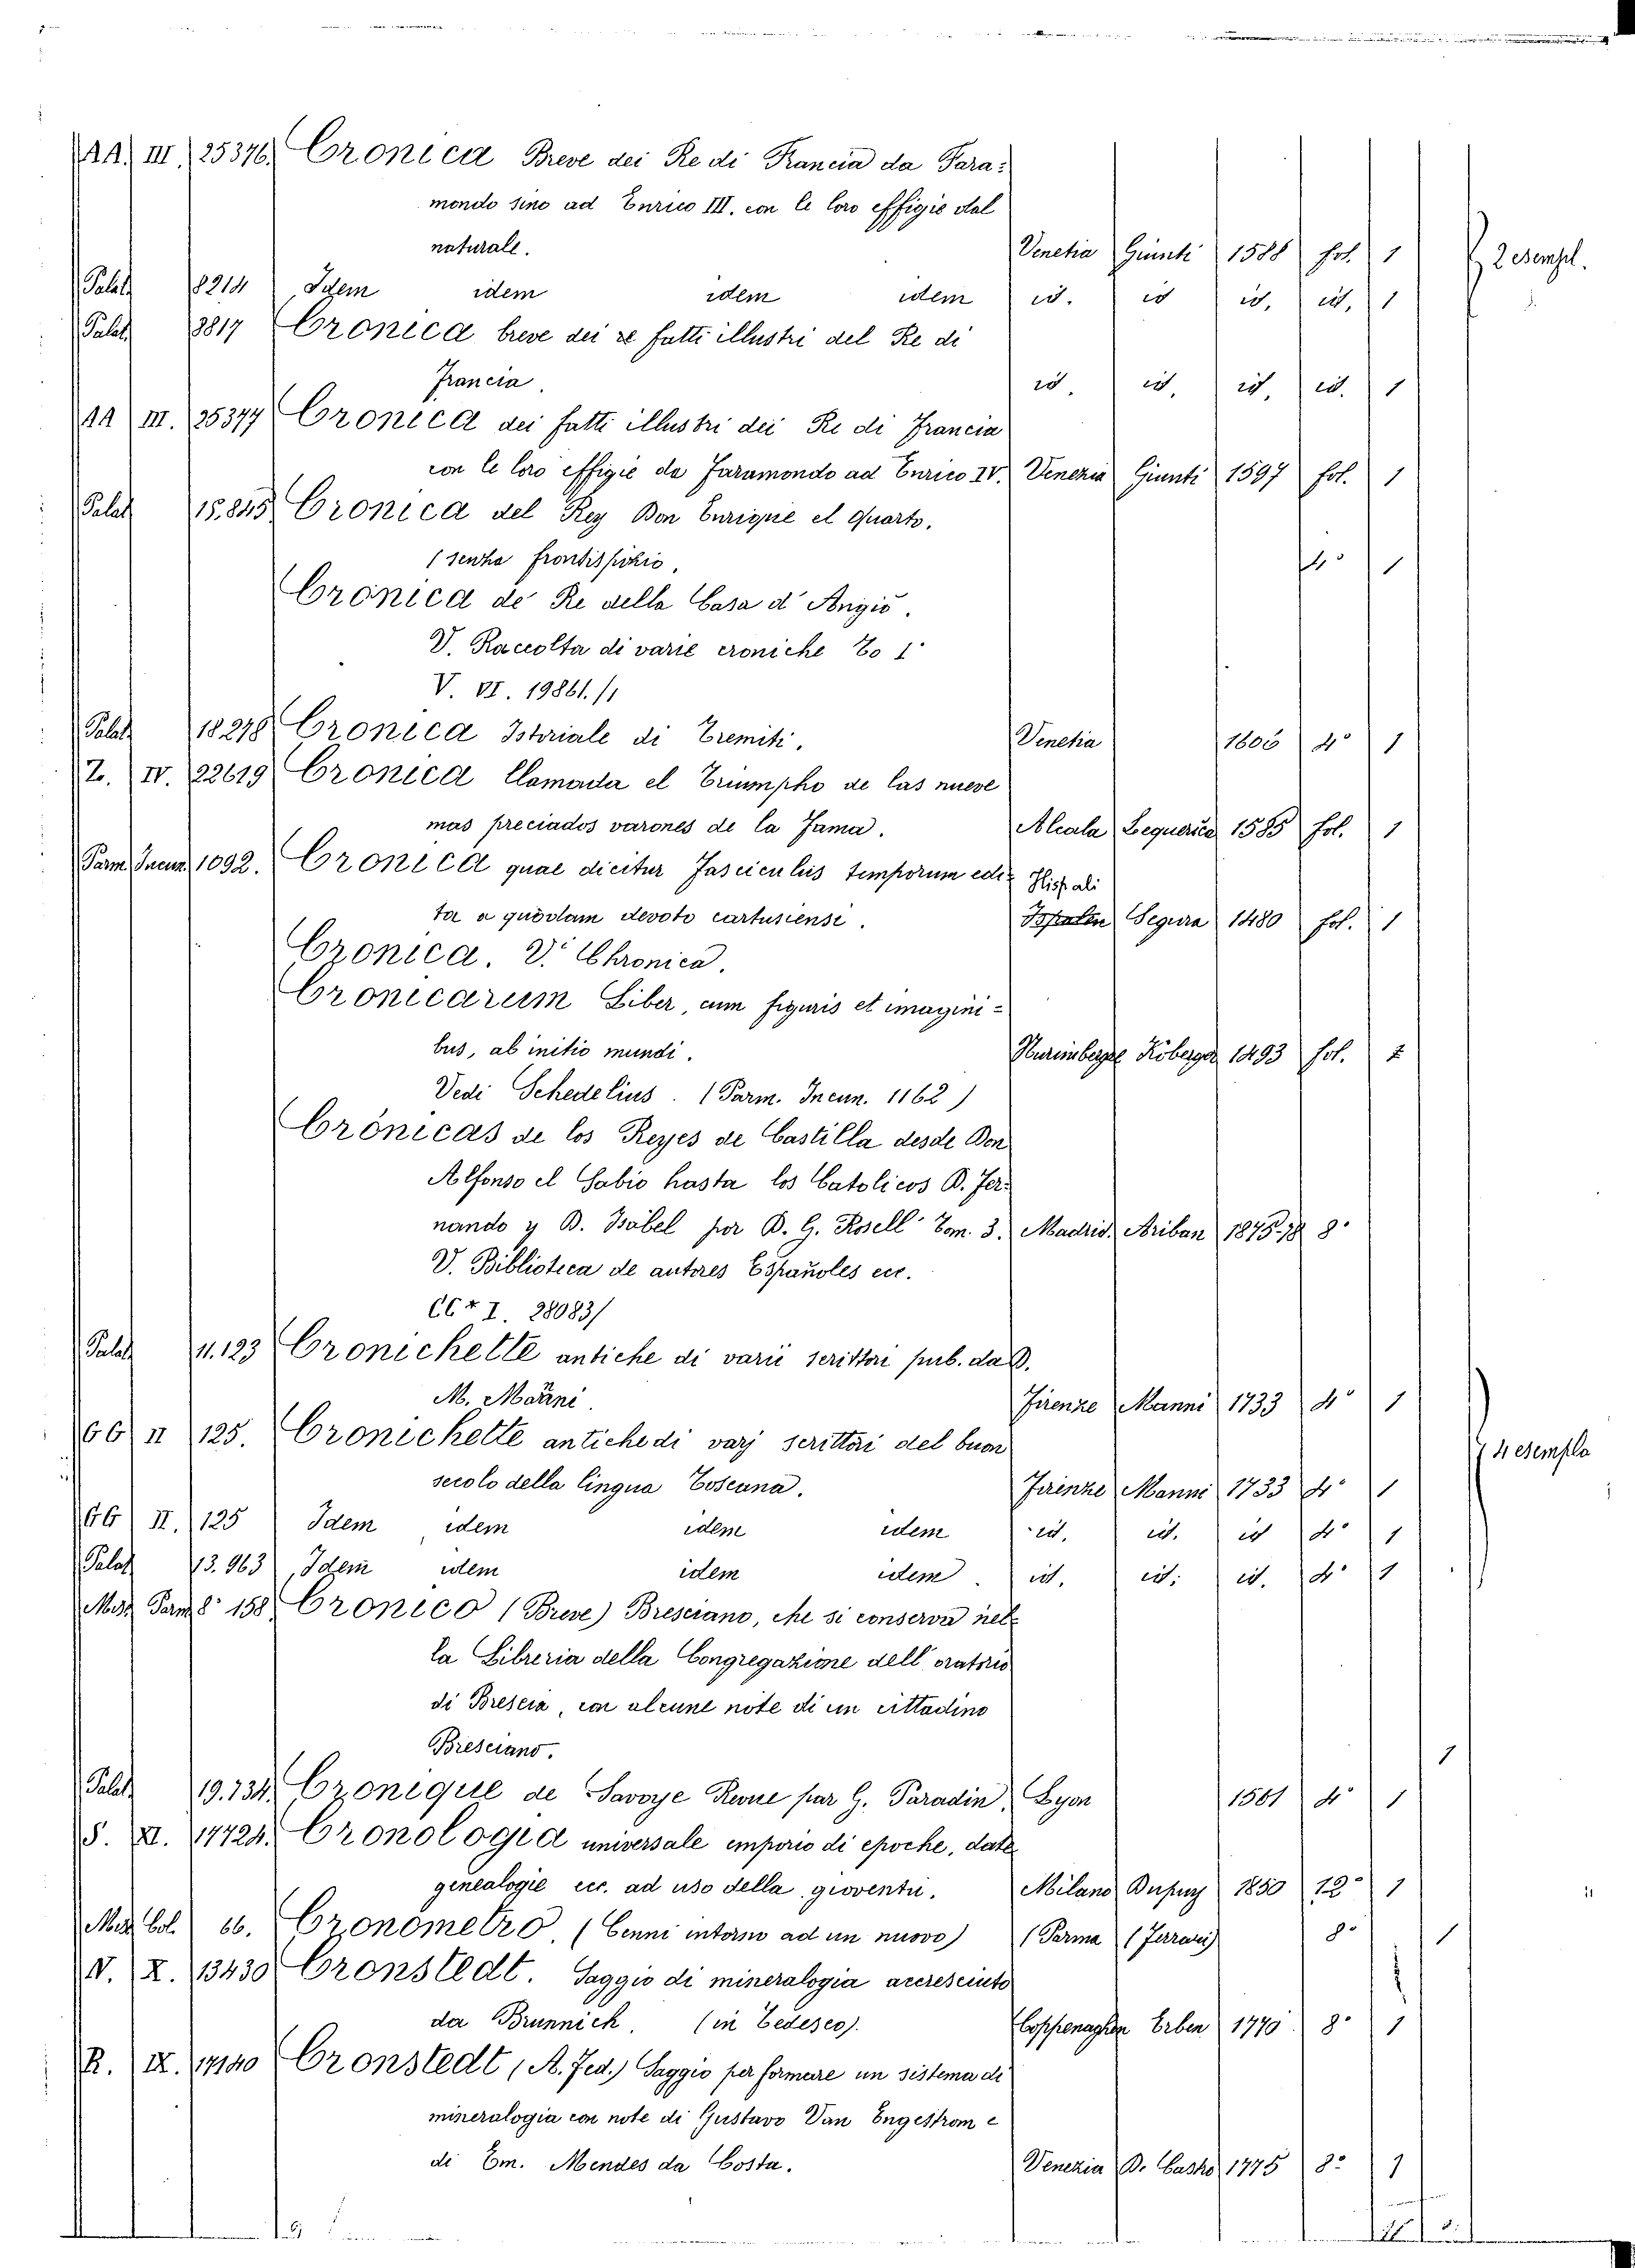 AA. III. 25376. Cronica Breve dei Re di Francia da Fara:
mondo sino ad Enrico III. con le loro effigie dal
naturale. Venetia Giunti 1588 fol. 1 2 esempl.
Palat 8214 Idem idem idem idem id. id id. id. 1
Palat 8817 Cronica breve dei re fatti illustri del Re di
Francia. id. id. id. id. 1
AA III. 25377 Cronica dei fatti illustri dei Re di Francia
con le loro effigie da Faramondo ad Enrico IV. Venezia Giunti 1597 fol. 1
Palat 15.845 Cronica del Rey Don Enrique el quarto.
(senza frontispizio. 4° 1
Cronica de Re della Casa d'Angiò.
V. Raccolta di varie croniche To 1°
V. VI. 19861./1
Palat 18278 Cronica Istoriale di Tremiti. Venetia 1606 4° 1
Z. IV. 22619 Cronica llamada el Triumpho de las nueve
mas preciados varones de la Fama. Alcala Lequerica 1585 fol. 1
Parm Incun. 1092. Cronica quae dicitur Fasciculus temporum edi= Hispali
ta a quodam devoto cartusiense. Segura 1480 fol. 1
Cronica. V. Chronica.
Cronicarum Liber, cum figuris et imagini=
bus, ab initio mundi. Nurimbergae Köberger 1493 fol. 1
Vedi Schedelius. (Parm. Incun. 1162)
Crónicas de los Reyes de Castilla desde Don
Alfonso el Sabio hasta los Catolicos D. Fer=
nando y D. Isabel por D. G. Rosell Tom. 3. Madrid. Ariban 1875-78 8°
V. Biblioteca de autores Españoles ecc.
CC* I. 28083/
Palat 11.123 Cronichette antiche di varii scrittori pub. da D.
M. Manni. Firenze Manni 1733 4° 1
GG II 125. Cronichette antiche di varj scrittori del buon
secolo della lingua Toscana. Firenze Manni 1733 4° 1 4 esempla
GG II. 125 Idem idem idem idem id. id. id 4° 1
Palat 13.963 Idem idem idem idem. id. id. id. 4° 1
Misc Parm 8° 158 Cronico (Breve) Bresciano, che si conserva nel=
la Libreria della Congregazione dell'oratorio
di Brescia, con alcune note di un cittadino
Bresciano. 1
Palat 19.734. Cronique de Savoye Revue par G. Paradin. Lyon 1561 4° 1
S. XI. 17724. Cronologia universale emporio di epoche, date
genealogie ecc. ad uso della gioventù. Milano Dupuy 1850 12° 1
Misc. Col. 66. Cronometro. (Cenni intorno ad un nuovo) (Parma (Ferrari) 8° 1
V. X. 13430 Cronstedt. Saggio di mineralogia accresciuto
da Brunnich. (in Tedesco). Coppenaghen Erben 1770. 8° 1
R. IX. 17140 Cronstedt (A. Fed.) Saggio per formare un sistema di
mineralogia con note di Gustavo Van Engestrom e
di Em. Mendes da Costa. Venezia D. Casho 1775 8° 1